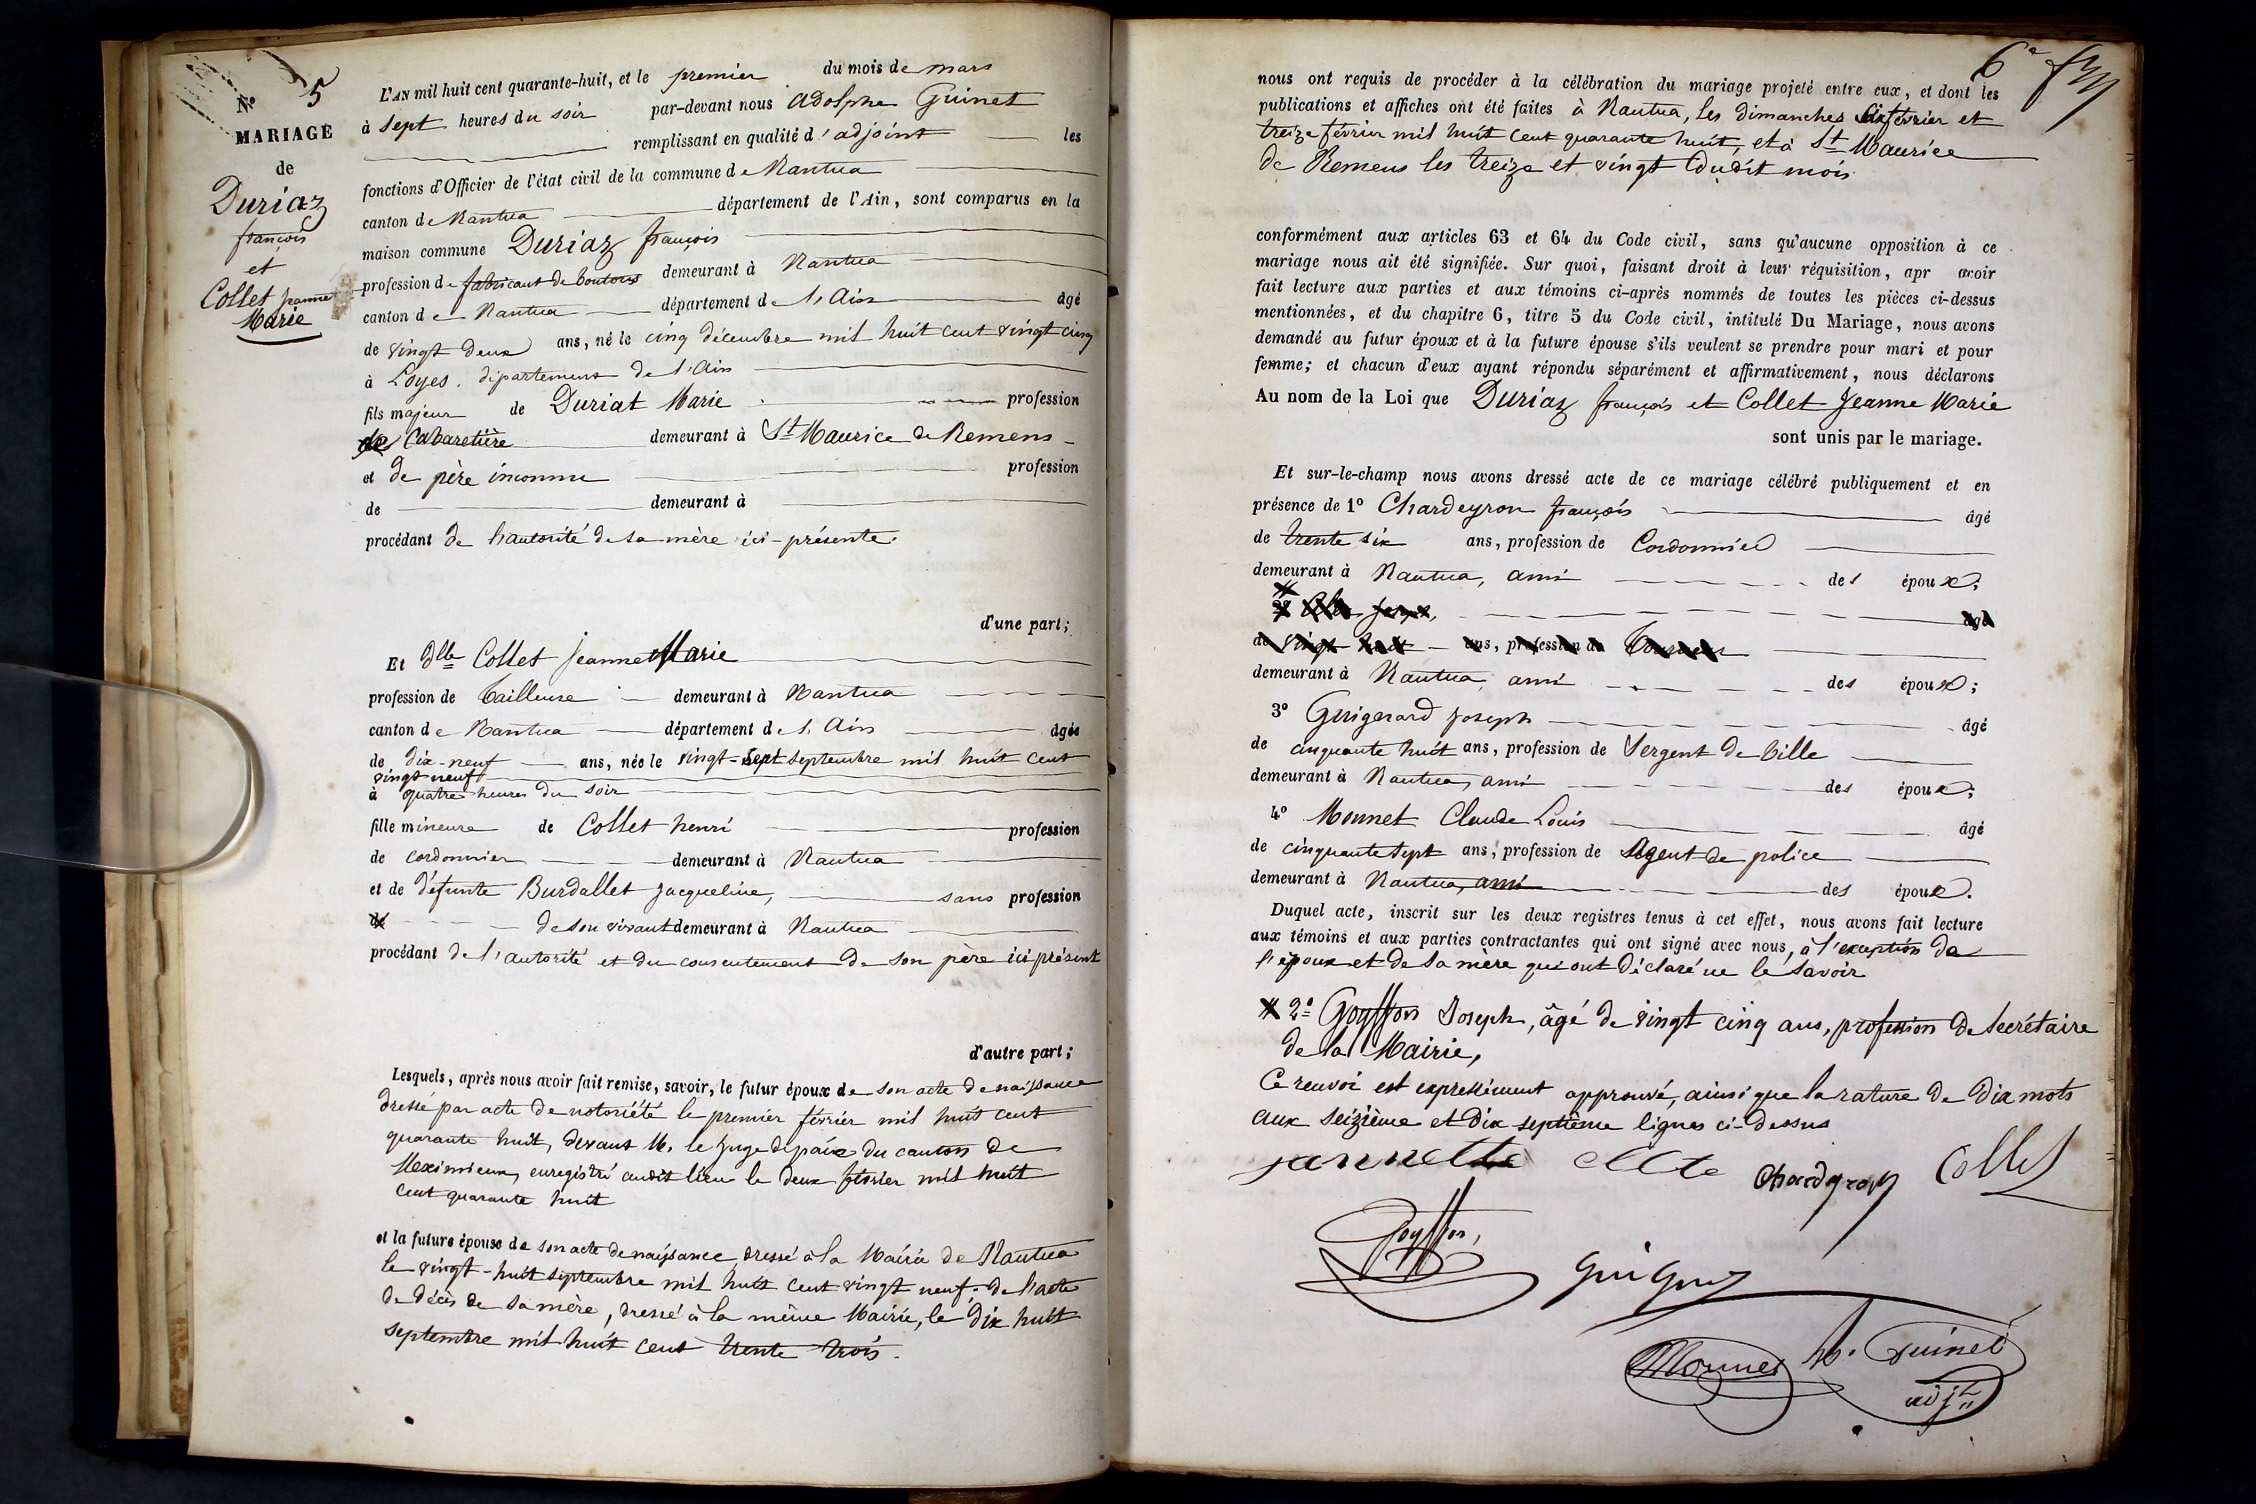 N° 5
MARIAGE
de
Duriaz
françois
et
Collet Jeanne
Marie
L'AN mil huit cent quarante-huit, et le premier du mois de mars
à sept heures du soir par-devant nous Adolphe Guinet
remplissant en qualité d'adjoint les
fonctions d'Officier de l'état civil de la commune de Nantua
canton de Nantua département de l'Ain, sont comparus en la
maison commune Duriaz françois
profession de fabricant de boutons demeurant à Nantua
canton de Nantua département de l'Ain âgé
de vingt deux ans, né le cinq décembre mil huit cent vingt cinq
à Loyes, département de l'Ain
fils majeur de Duriat Marie profession
de Cabaretière demeurant à St Maurice de Remens
et de père inconnu profession
de demeurant à
procédant de l'autorité de sa mère ici-présente.
d'une part;
Et Dlle Collet Jeanne Marie
profession de tailleuse demeurant à Nantua
canton de Nantua département de l'Ain âgée
de dix-neuf ans, née le vingt-sept septembre mil huit cent
vingt neuf
à quatre heures du soir
fille mineure de Collet henri profession
de cordonnier demeurant à Nantua
et de défunte Burdallet Jacqueline, sans profession
de de son vivant demeurant à Nantua
procédant de l'autorité et du consentement de son père ici présent
d'autre part;
Lesquels, après nous avoir fait remise, savoir, le futur époux de son acte de naissance
dressé par acte de notoriété le premier février mil huit cent
quarante huit, devant M. le Juge de paix du canton de
Meximieux, enregistré audit lieu le deux février mil huit
cent quarante huit
et la future épouse de son acte de naissance, dressé à la Mairie de Nantua
le vingt-huit septembre mil huit cent vingt neuf. de l'acte
de décès de sa mère, dressé à la même Mairie, le dix huit
septembre mil huit cent trente trois.
6e
nous ont requis de procéder à la célébration du mariage projeté entre eux, et dont les
publications et affiches ont été faites à Nantua, les dimanches six février et
treize février mil huit cent quarante huit, et à St Maurice
de Remens les treize et vingt dudit mois
conformément aux articles 63 et 64 du Code civil, sans qu'aucune opposition à ce
mariage nous ait été signifiée. Sur quoi, faisant droit à leur réquisition, apr avoir
fait lecture aux parties et aux témoins ci-après nommés de toutes les pièces ci-dessus
mentionnées, et du chapitre 6, titre 5 du Code civil, intitulé Du Mariage, nous avons
demandé au futur époux et à la future épouse s'ils veulent se prendre pour mari et pour
femme; et chacun d'eux ayant répondu séparément et affirmativement, nous déclarons
Au nom de la Loi que Duriaz françois et Collet Jeanne Marie
sont unis par le mariage.
Et sur-le-champ nous avons dressé acte de ce mariage célébré publiquement et en
présence de 1° Chardeyron françois âgé
de trente six ans, profession de Cordonnier
demeurant à Nantua, ami des époux;
2° âgé
de vingt huit ans, profession de
demeurant à Nantua, ami des époux;
3° Guignard Joseph âgé
de cinquante huit ans, profession de Sergent de Ville
demeurant à Nantua, ami des époux;
4° Monnet Claude Louis âgé
de cinquante sept ans, profession de Agent de police
demeurant à Nantua, ami des époux.
Duquel acte, inscrit sur les deux registres tenus à cet effet, nous avons fait lecture
aux témoins et aux parties contractantes qui ont signé avec nous, à l'exception de
l'époux et de sa mère qui ont déclaré ne le savoir
2° Goyffon Joseph, âgé de vingt cinq ans, profession de Secrétaire
de la Mairie,
Ce renvoi est expressément approuvé, ainsi que la rature de dix mots
aux seizième et dix septième lignes ci-dessus
jannette Chardeyron Collet
Goyffon,
Monnet A. Guinet
adjt